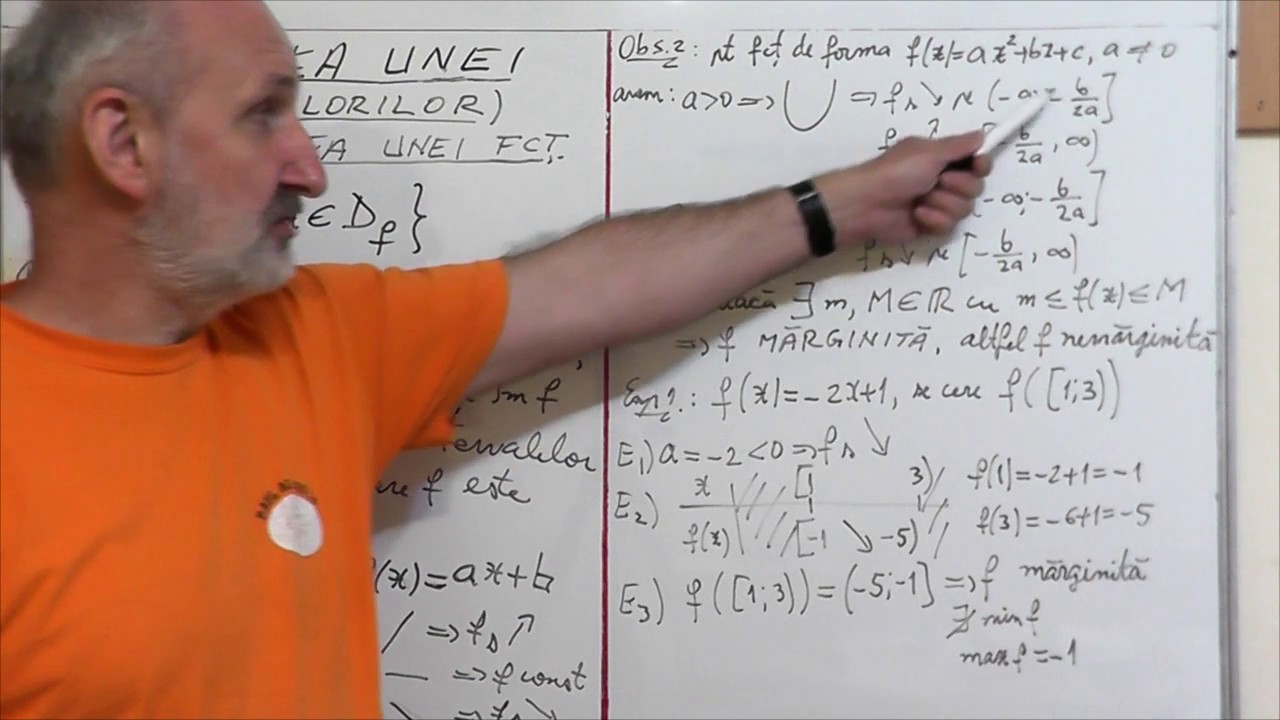 EA UNEI
LORILOR)
EA UNEI FCȚ.
∈ D_f }
sm f
ervalelor
f este
(x) = ax + b
/ => f s ↗
— => f const
Obs.2: pt fcț de forma f(x) = ax²+bx+c, a ≠ 0
avem: a>0 => ∪ => f s ↘ pe (-∞; -b/2a]
b/2a, ∞)
-∞; -b/2a]
f s ↘ pe [-b/2a, ∞)
dacă ∃ m, M ∈ ℝ cu m ≤ f(x) ≤ M
=> f MĂRGINITĂ, altfel f nemărginită
Exp1.: f(x) = -2x+1, se cere f([1;3))
E₁) a = -2 < 0 => f s ↘
E₂) x [1 3) f(1) = -2+1 = -1
f(x) [-1 ↘ -5) f(3) = -6+1 = -5
E₃) f([1;3)) = (-5;-1] => f mărginită
∄ min f
max f = -1